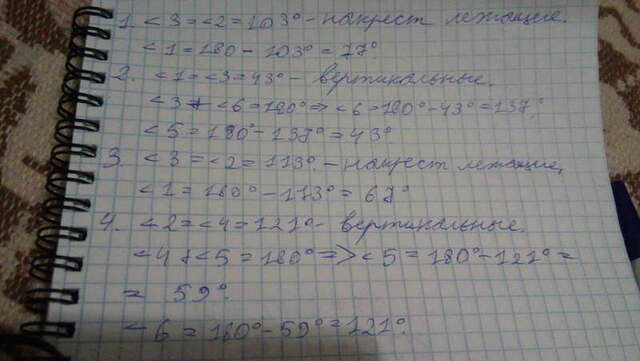 1. <3=<2=103°- накрест лежащие.
<1=180-103°=77°.
2. <1=<3=43°- вертикальные.
<3+<6=180°=><6=180°-43°=137°.
<5=180°-137°=43°
3. <3=<2=113°.- накрест лежащие,
<1=180°-113°=67°
4. <2=<4=121°- вертикальные.
<4+<5=180°=><5=180°-121°=
= 59°.
<6=180°-59°=121°.